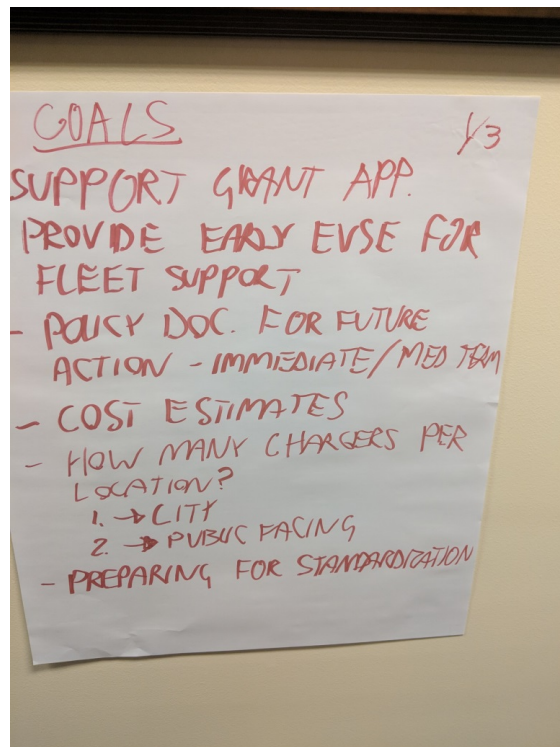 GOALS
1/3
SUPPORT GRANT APP.
PROVIDE EARLY EVSE FOR
FLEET SUPPORT
- POLICY DOC. FOR FUTURE
ACTION - IMMEDIATE/MED TERM
- COST ESTIMATES
- HOW MANY CHARGERS PER
LOCATION?
1. → CITY
2. → PUBLIC FACING
- PREPARING FOR STANDARDIZATION